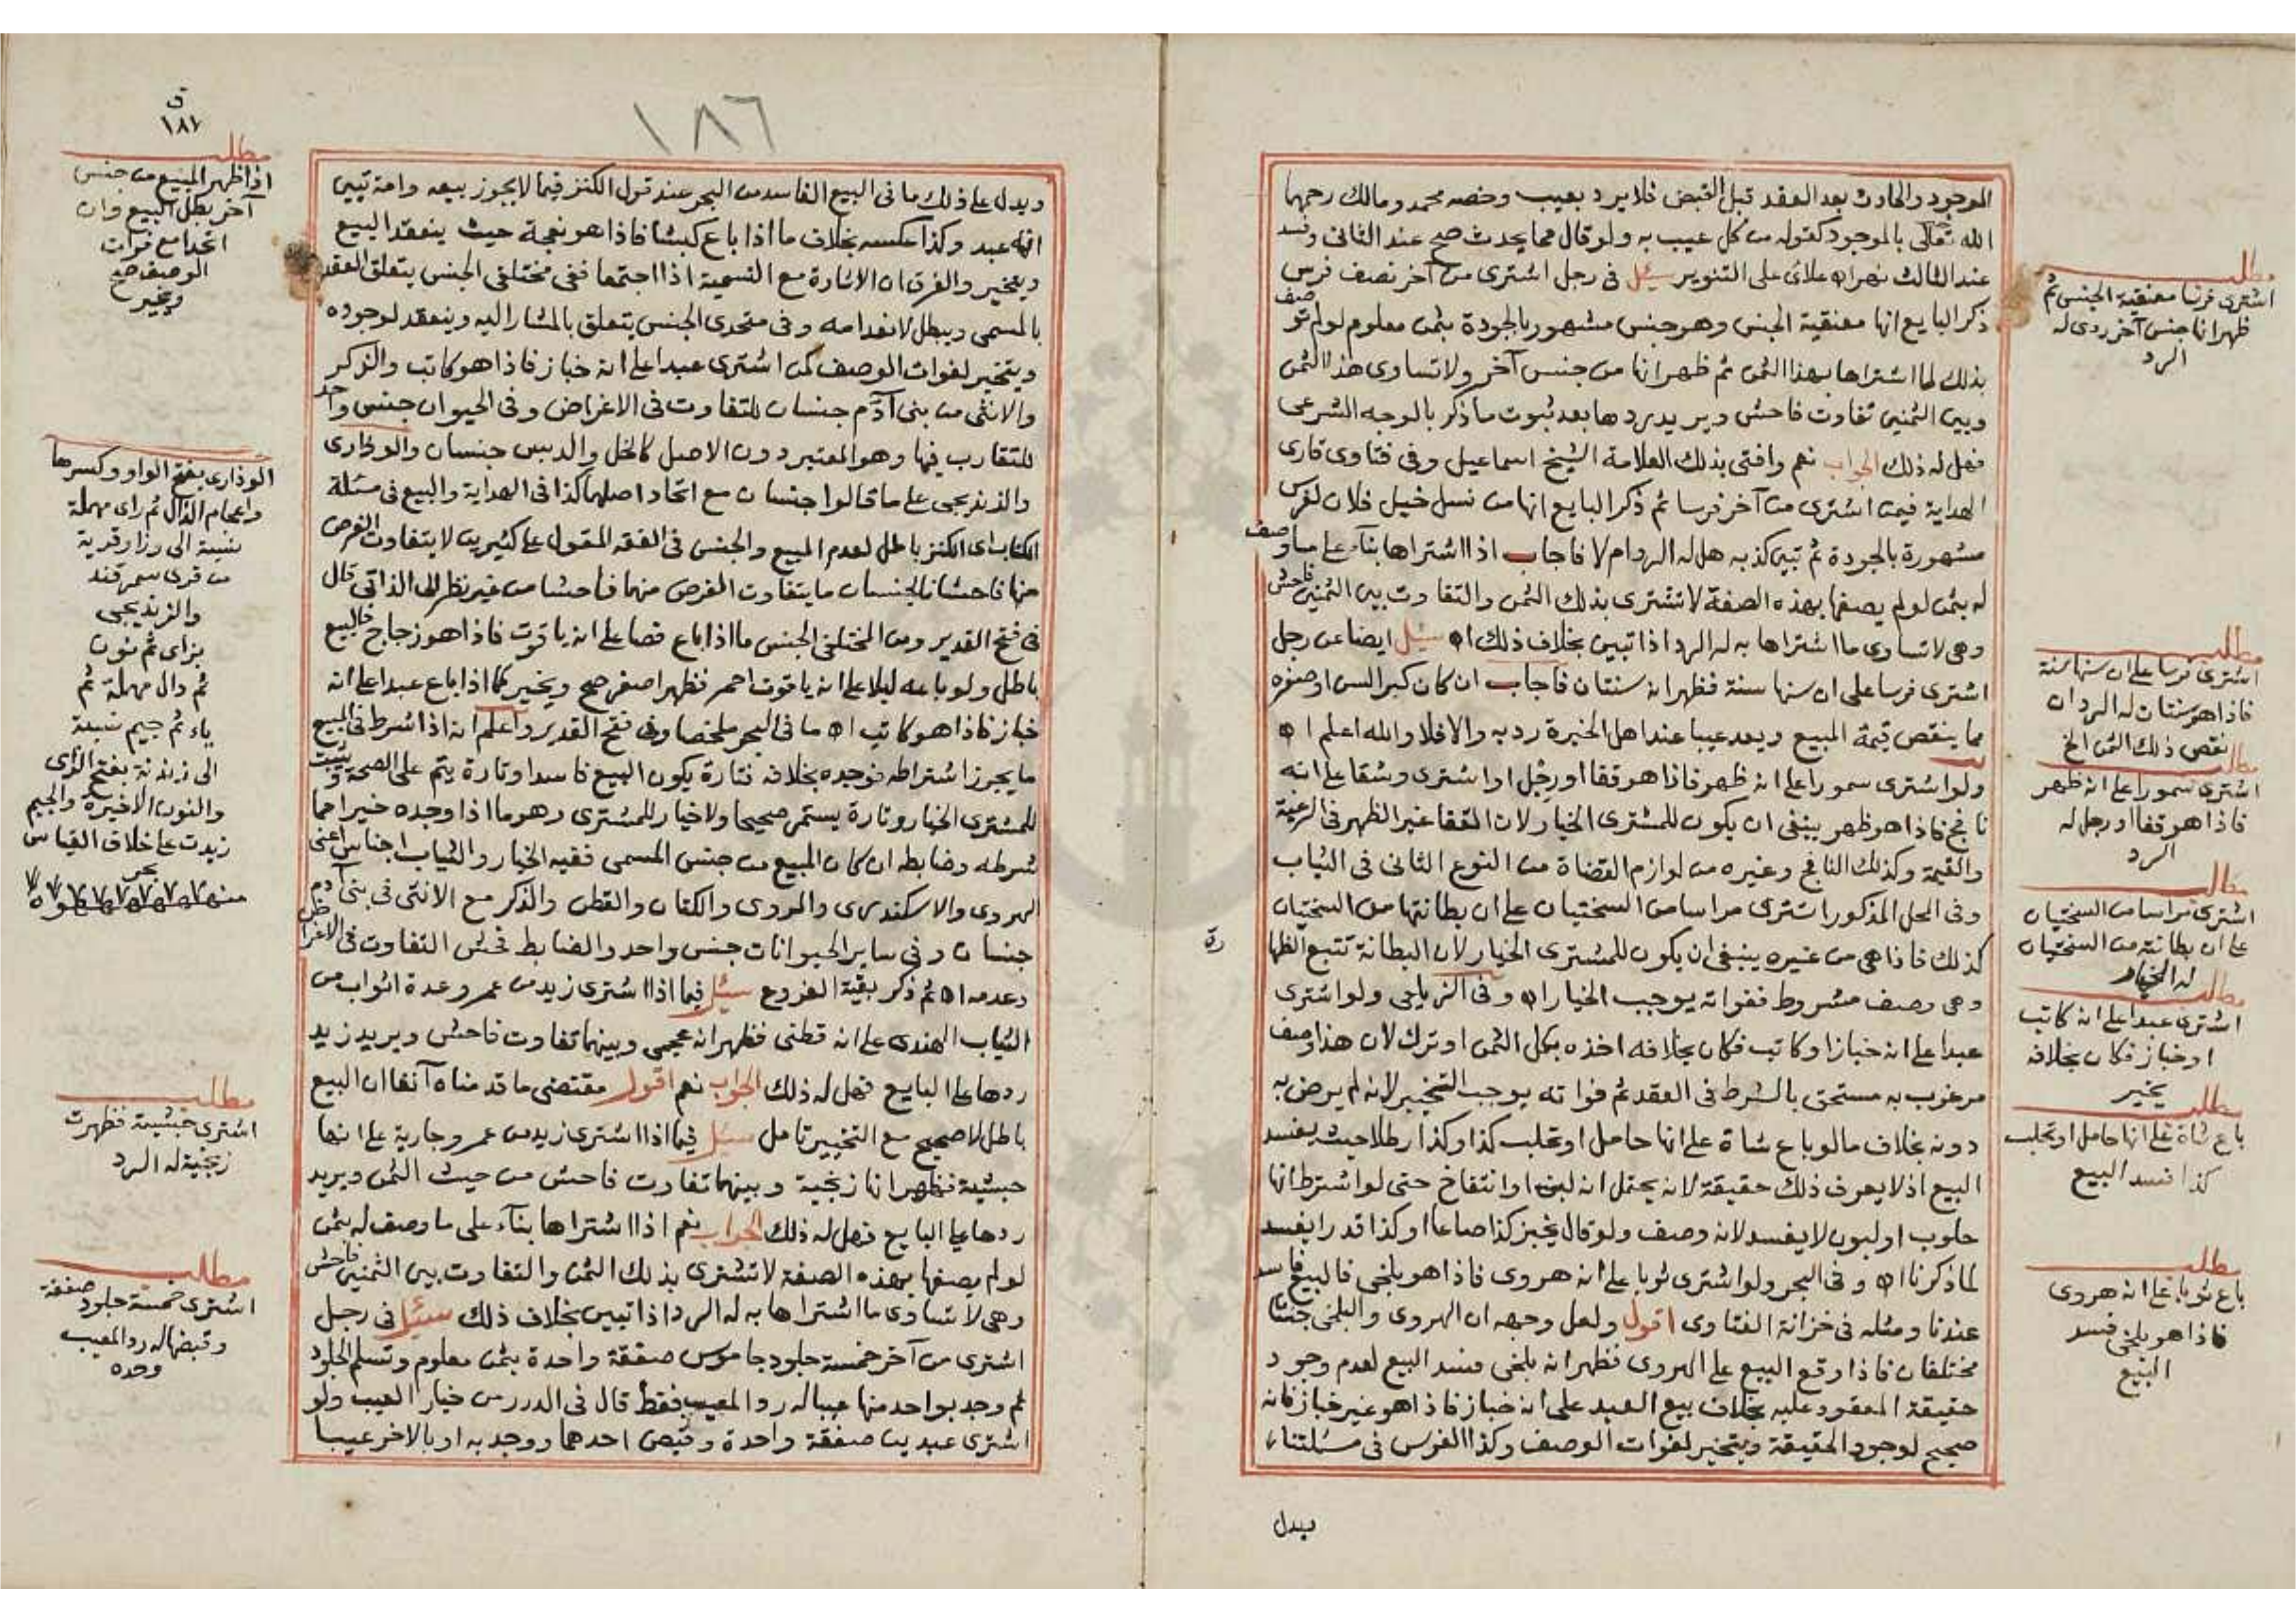 الموجود والحادث بعد العقد قبل القبض فلا يرد بعيب وخصه محمد ومالك رحمهما
الله تعالى بالموجود كقوله من كل عيب به ولو قال مما يحدث صح عند الثانى وفسد
عند الثالث نهر اه علائى على التنوير سئل فى رجل اشترى من آخر نصف فرس
ذكر البايع انها معنقية الجنس وهو جنس مشهور بالجودة بثمن معلوم لو لم توصف
بذلك لما اشتراها بهذا الثمن ثم ظهر انها من جنس آخر ولا تساوى هذا الثمن
وبين الثمنين تفاوت فاحش ويريد ردها بعد ثبوت ما ذكر بالوجه الشرعى
فهل له ذلك الجواب نعم وافتى بذلك العلامة الشيخ اسماعيل وفى فتاوى قارى
الهداية فيمن اشترى من آخر فرسا ثم ذكر البايع انها من نسل خيل فلان لفرس
مشهورة بالجودة ثم تبين كذبه هل له الرد ام لا فاجاب اذا اشتراها بناء على ما وصف
له بثمن لو لم يصفها بهذه الصفة لا تشترى بذلك الثمن والتفاوت بين الثمنين فاحش
وهى لا تساوى ما اشتراها به له الرد اذا تبين بخلاف ذلك اه سئل ايضا عن رجل
اشترى فرسا على ان سنها سنة فظهر انه سنتان فاجاب ان كان كبر السن او صغره
مما ينقص قيمة المبيع ويعد عيبا عند اهل الخبرة رد به والا فلا والله اعلم اه
ولو اشترى سمورا على انه ظهر فاذا هو قفا او رجل او اشترى وشقا على انه
نافج فاذا هو ظهر ينبغى ان يكون للمشترى الخيار لان القفا غير الظهر فى الرغبة
والقيمة وكذلك النافج وغيره من لوازم القضاة من النوع الثانى فى الثياب
وفى المحل المذكور اشترى مراسا من السختيان على ان بطانتها من السختيان
كذلك فاذا هى من غيره ينبغى ان يكون للمشترى الخيار لان البطانة تتبع الظهارة
وهى وصف مشروط ففواته يوجب الخيار اه وفى الزيلعى ولو اشترى
عبدا على انه خبازا وكاتب فكان بخلافه اخذه بكل الثمن او ترك لان هذا وصف
مرغوب به مستحق بالشرط فى العقد ثم فواته يوجب التخيير لانه لم يرض به
دونه بخلاف ما لو باع شاة على انها حامل او تحلب كذا وكذا رطلا حيث يفسد
البيع اذ لا يعرف ذلك حقيقة لانه يحتمل انه لبن او انتفاخ حتى لو اشترط انها
حلوب او لبون لا يفسد لانه وصف ولو قال يخبز كذا صاعا او كذا قدرا يفسد
لما ذكرنا اه وفى البحر ولو اشترى ثوبا على انه هروى فاذا هو بلخى فالبيع فاسد
عندنا ومثله فى خزانة الفتاوى اقول ولعل وجهه ان الهروى والبلخى جنسان
مختلفان فاذا وقع البيع على الهروى فظهر انه بلخى فسد البيع لعدم وجود
حقيقة المعقود عليه بخلاف بيع العبد على انه خباز فاذا هو غير خباز فانه
صحيح لوجود الحقيقة ويتخير لفوات الوصف وكذا الفرس فى مسئلتنا
يدل
مطلب
اشترى فرسا معنقية الجنس ثم
ظهر انها جنس آخر ردى له
الرد
مطلب
اشترى فرسا على ان سنها سنة
فاذا هو سنتان له الرد ان
نقص ذلك الثمن الخ
مطلب
اشترى سمورا على انه ظهر
فاذا هو قفا او رجل له
الرد
مطلب
اشترى مراسا من السختيان
على ان بطانته من السختيان
له الخيار
مطلب
اشترى عبدا على انه كاتب
او خباز فكان بخلافه
يخير
مطلب
باع شاة على انها حامل او تحلب
كذا فسد البيع
مطلب
باع ثوبا على انه هروى
فاذا هو بلخى فسد
البيع
١٨٦
ويدل على ذلك ما فى البيع الفاسد من البحر عند قول الكنز فيما لا يجوز بيعه وامة تبين
انه عبد وكذا عكسه بخلاف ما اذا باع كبشا فاذا هو نعجة حيث ينعقد البيع
ويتخير والفرق ان الاشارة مع التسمية اذا اجتمعا ففى مختلفى الجنس يتعلق العقد
بالمسمى ويبطل لانعدامه وفى متحدى الجنس يتعلق بالمشار اليه وينعقد لوجوده
ويتخير لفوات الوصف كمن اشترى عبدا على انه خباز فاذا هو كاتب والذكر
والانثى من بنى آدم جنسان للتفاوت فى الاغراض وفى الحيوان جنس واحد
للتقارب فيها وهو المعتبر دون الاصل كالخل والدبس جنسان والوذارى
والزندنيجى على ما قالوا جنسان مع اتحاد اصلهما كذا فى الهداية والبيع فى مسئلة
الكتاب اى الكنز باطل لعدم المبيع والجنس فى الفقه المقول على كثيرين لا يتفاوت الغرض
منها فاحشا فالجنسان ما يتفاوت الغرض منهما فاحشا من غير نظر الى الذاتى قال
فى فتح القدير ومن المختلفى الجنس ما اذا باع فصا على انه ياقوت فاذا هو زجاج فالبيع
باطل ولو باعه ليلا على انه ياقوت احمر فظهر اصفر صح ويخير كما اذا باع عبدا على انه
خباز فاذا هو كاتب اه ما فى البحر ملخصا وفى فتح القدير واعلم انه اذا اشرط فى المبيع
ما يجوز اشتراطه فوجده بخلافه فتارة يكون البيع فاسدا وتارة يتم على الصحة ويثبت
للمشترى الخيار وتارة يستمر صحيحا ولا خيار للمشترى وهو ما اذا وجده خيرا مما
شرطه وضابطه ان كان المبيع من جنس المسمى ففيه الخيار والثياب اجناس اعنى
الهروى والاسكندرى والمروى والكتان والقطن والذكر مع الانثى فى بنى آدم
جنسان وفى ساير الحيوانات جنس واحد والضابط فحش التفاوت فى الاغراض
وعدمه اه ثم ذكر بقية الفروع سئل فيما اذا اشترى زيد من عمرو عدة اثواب من
الثياب الهندى على انه قطنى فظهر انه عجمى وبينهما تفاوت فاحش ويريد زيد
ردها على البايع فهل له ذلك الجواب نعم اقول مقتضى ما قدمناه آنفا ان البيع
باطل لا صحيح مع التخيير تامل سئل فيما اذا اشترى زيد من عمرو جارية على انها
حبشية فظهر انها زنجية وبينهما تفاوت فاحش من حيث الثمن ويريد
ردها على البايع فهل له ذلك الجواب نعم اذا اشتراها بناء على ما وصف له بثمن
لو لم يصفها بهذه الصفة لا تشترى بذلك الثمن والتفاوت بين الثمنين فاحش
وهى لا تساوى ما اشتراها به له الرد اذا تبين بخلاف ذلك سئل فى رجل
اشترى من آخر خمسة جلود جاموس صفقة واحدة بثمن معلوم وتسلم الجلود
ثم وجد بواحد منها عيبا له رد المعيب فقط قال فى الدرر من خيار العيب ولو
اشترى عبدين صفقة واحدة وقبض احدهما ووجد به او بالاخر عيبا
ق
١٨٧
مطلب
اذا ظهر المبيع من جنس
آخر بطل البيع وان
اتحدا مع فوات
الوصف صح
ويخير
الوذارى بفتح الواو وكسرها
واعجام الذال ثم راى مهملة
نسبة الى وذار قرية
من قرى سمرقند
والزنديجى
بزاى ثم نون
ثم دال مهملة ثم
ياء ثم جيم نسبة
الى زندنة بفتح الزاى
والنون الاخيرة والجيم
زيدت على خلاف القياس
بحر
منه
مطلب
اشترى حبشية فظهرت
زنجية له الرد
مطلب
اشترى خمسة جلود صفقة
وقبضها له رد المعيب
وحده